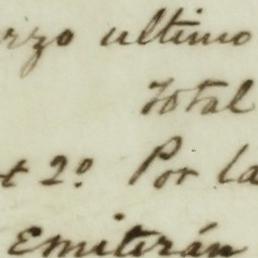 rzo ultimo
Total
t 2º. Por la
Emitirán